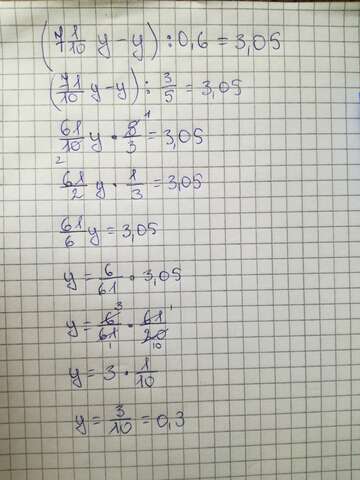 (7 1/10 y - y) : 0,6 = 3,05
(71/10 y - y) : 3/5 = 3,05
61/10 2 y · 5/3 1 = 3,05
61/2 y · 1/3 = 3,05
61/6 y = 3,05
y = 6/61 · 3,05
y = 6 3/61 1 · 61 1/20 10
y = 3 · 1/10
y = 3/10 = 0,3